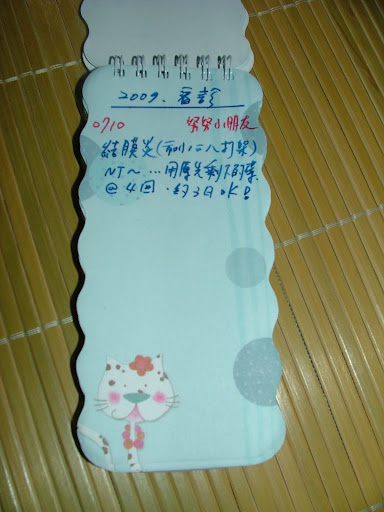 2009. 看診
0710 努努小朋友
結膜炎(和八二八打架)
NT~ …用原先剩下的藥
@4回.約3日OK!